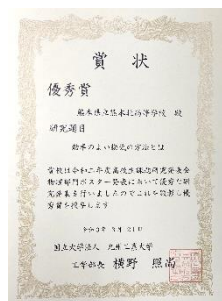 賞状
優秀賞
熊本県立熊本北高等学校 殿
研究題目
効率のよい換気の方法とは
貴校は令和二年度高校生課題研究発表会
物理部門ポスター発表において優秀な研
究発表を行いましたのでこれを賞し優
秀賞を授与します
令和3年3月21日
国立大学法人 九州工業大学
工学部長 横野 照尚